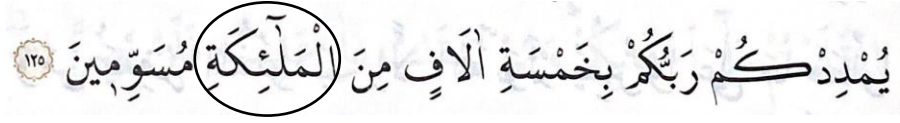 يُمْدِدْكُمْ رَبُّكُمْ بِخَمْسَةِ اٰلَافٍ مِنَ الْمَلٰٓئِكَةِ مُسَوِّم۪ينَ ﴿١٢٥﴾